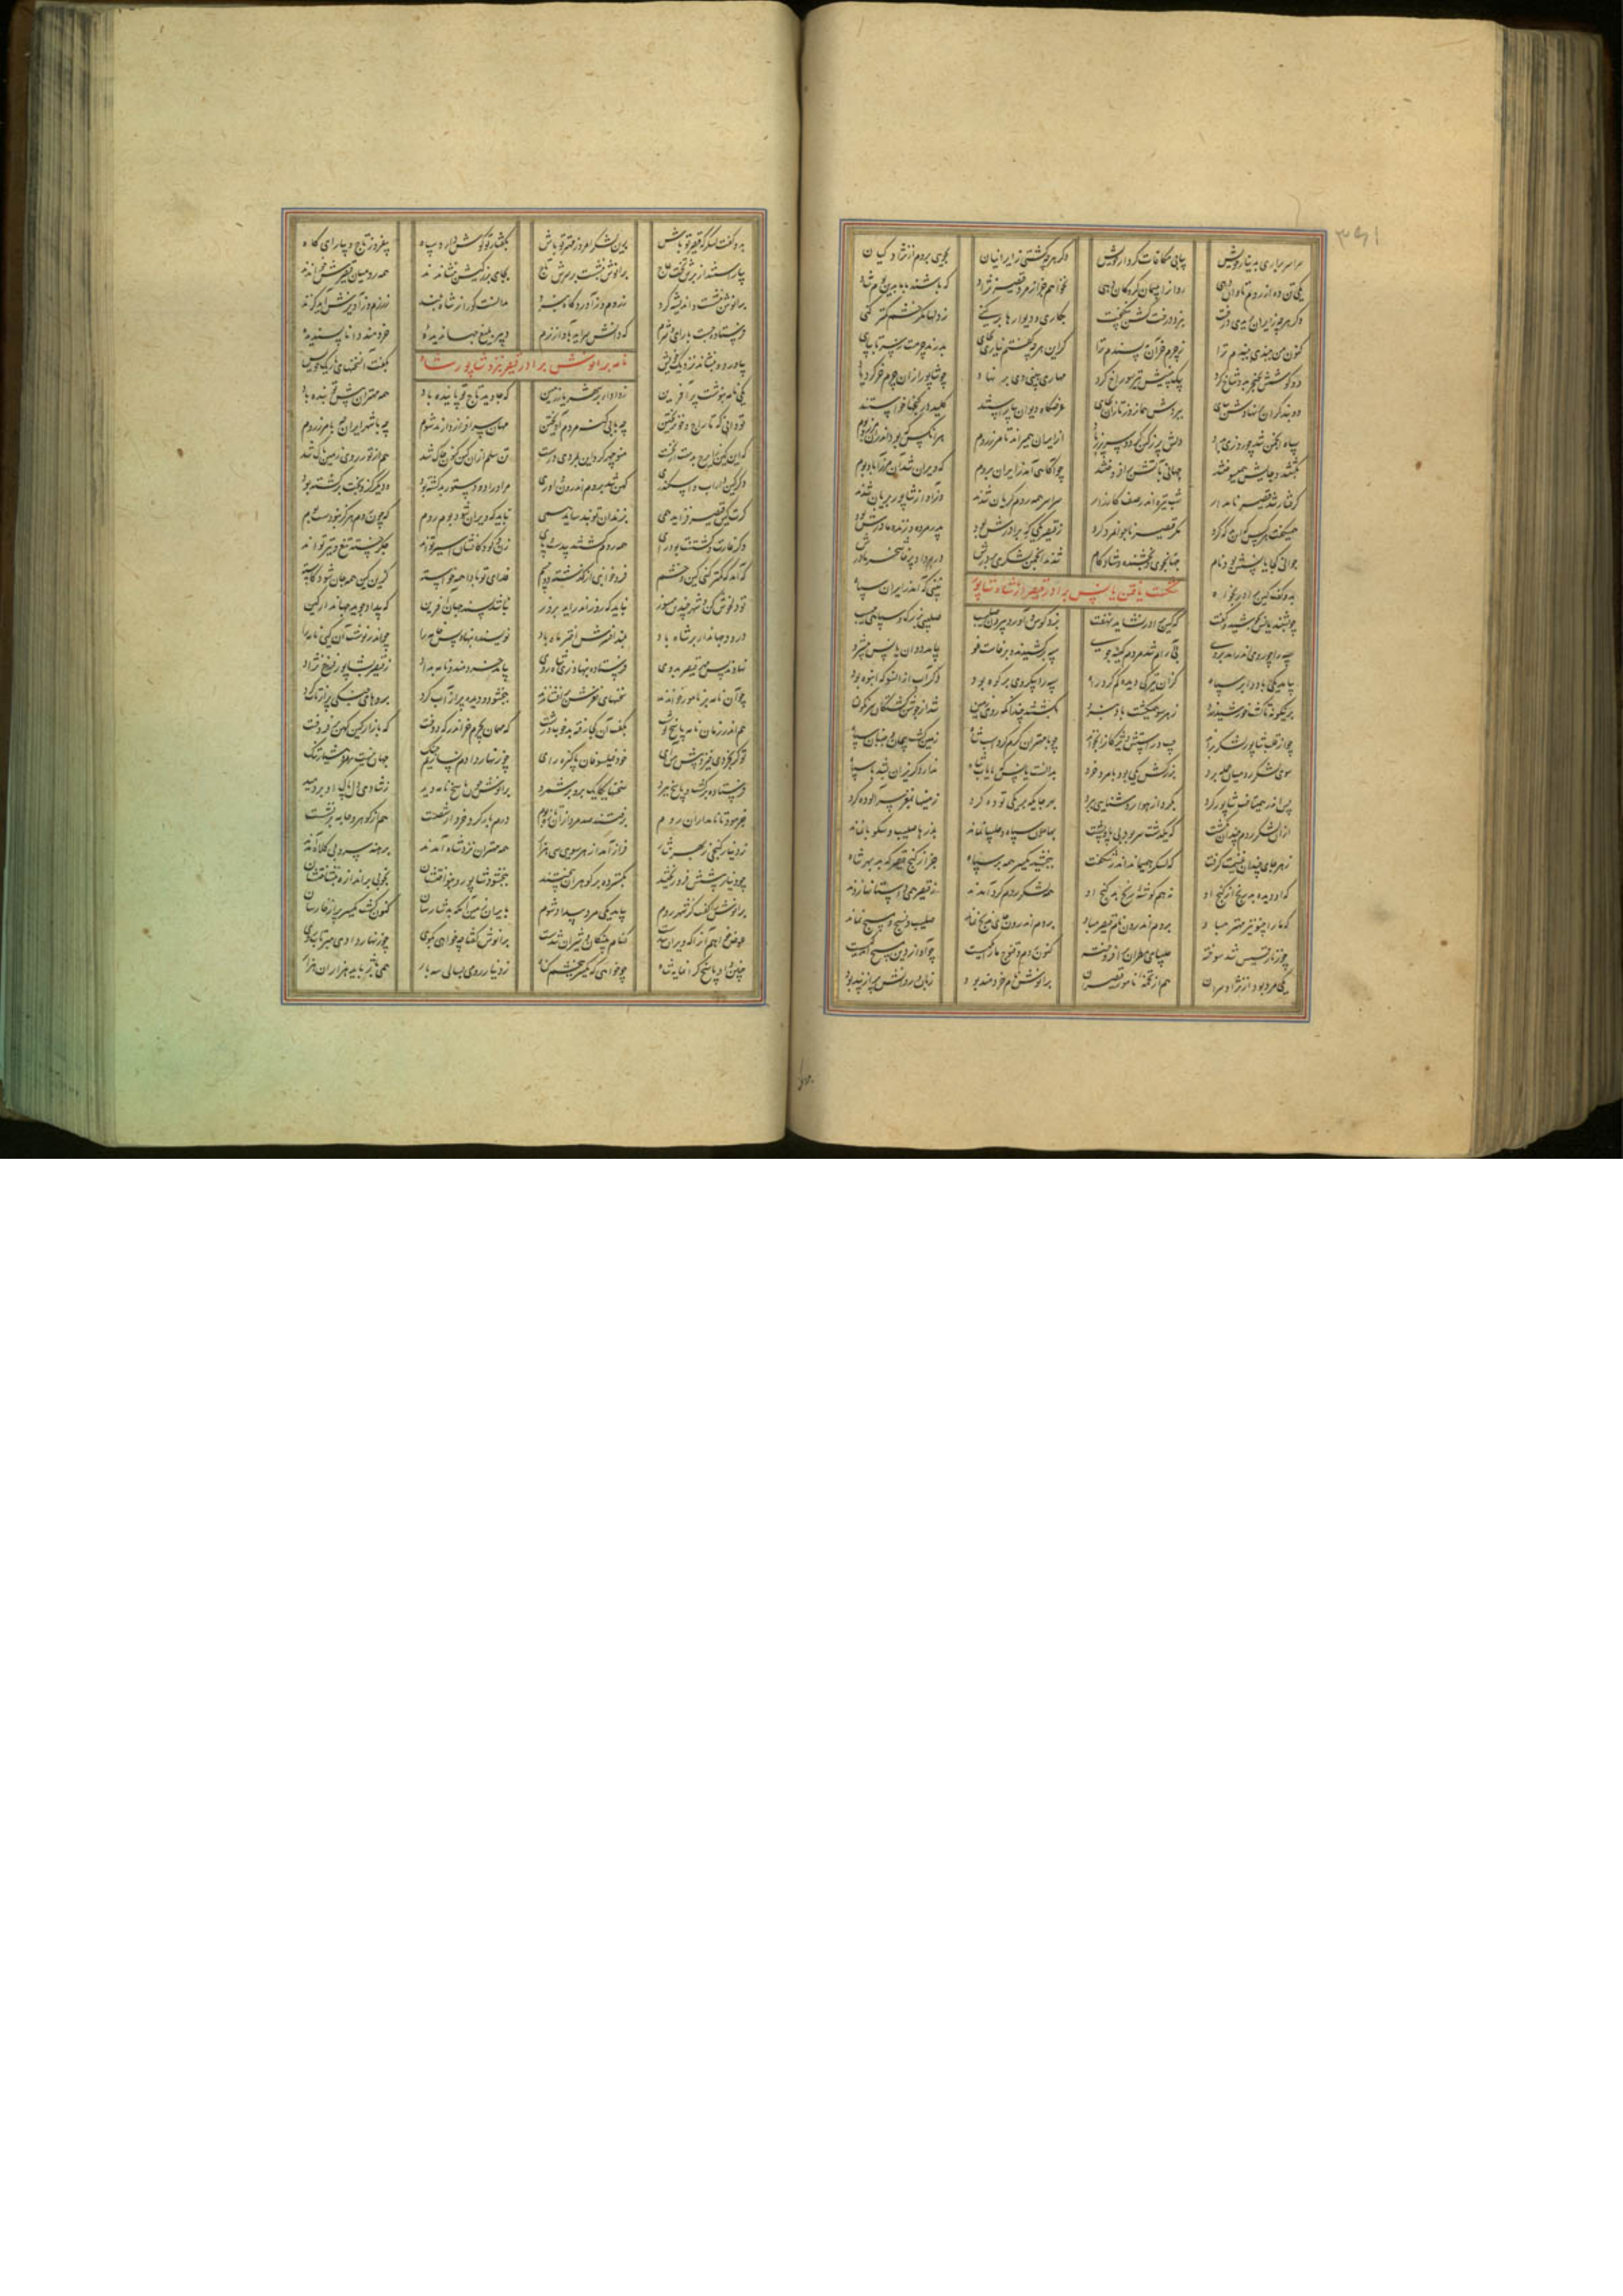 سراسر بیاری به دینار خویش بیابی مکافات کردار خویش دگر هر چه کشتی ز ایرانیان بجویی بروم از نژاد کیان
یکی تن ده از روم تاوان دهی روان را به پیمان گروگان دهی نخواهم جز از مرد قیصر نژاد که باشند با ما بدین بوم شاد
دگر هر چه ز ایران بریدی درخت نبرد درخت گشن نیکبخت بکاری و دیوارها برکنی ز دلها مگر خشم کمتر کنی
کنون من به بندی ببندم ترا ز چرم خران کی پسندم ترا گر این هر چه گفتم نیاری بجای بدرند چرمت ز سر تا بپای
دو گوشش بخنجر به دو شاخ کرد بیک جای بینیش سوراخ کرد مهاری به بینی وی بر نهاد چو شاپور از آن چرم خر کرد یاد
دو بند گران بر نهادش بپای ببردش همان روزبان باز جای عرضگاه و دیوان بیاراستند کلید در گنجها خواستند
سپاه انجمن شد چو روزی بداد دلش پر ز کین گشت و سر پر ز باد از ایران همی راند تا مرز روم هر آنکس که بود اندران مرز و بوم
بکشتند و خانش همی سوختند جهانی بآتش برافروختند چو آگاهی آمد ز ایران بروم که ویران شد آن مرز آباد بوم
گرفتار شد قیصر نامدار شب تیره اندر صف کارزار سراسر همه روم گریان شدند وز آواز شاپور بریان شدند
همی گفت هر کس که این بد که کرد مگر قیصر ناجوانمرد کرد ز قیصر یکی که برادرش بود پدر مرده و زنده مادرش بود
جوانی کجا یانسش بود نام جهانجوی و بخشنده و شادکام شدند انجمن لشکری بر درش درم داد پرخاشجو مادرش
بدو گفت کین برادر بخواه نبینی که آمد ز ایران سپاه
شکست یافتن یانس برادر قیصر از شاه شاپور
چو بشنید یانس بجوشید و گفت که کین برادر نشاید نهفت بزد کوس و آورد بیرون صلیب صلیبی بزرگ و سپاهی مهیب
سپه را چو روی اندر آمد بروی بی آرام شد مردم کینه جوی سپه بر کشیدند و برخاست غو بیامد دوان یانس پیش رو
بیامد یکی باد و ابر سیاه کز آن تیرگی دیده گم کرد راه سپه را یکی روی بر کوه بود دگر آب از آنسو که انبوه بود
برین گونه تا گشت خورشید زرد ز هر سو همی گشت باد نبرد بکشتند چندانکه روی زمین شد از جوشن کشتگان سرنگون
چو از قلب شاپور لشکر براند چپ و راستش ویژگان را بخواند چو با مهتران گرم کرد اسپ شاه زمین گشت پیچان و جنبان سپاه
سوی لشکر رومیان حمله برد بزرگش یکی بود با مرد خرد بدانست یانس که پایاب شاه ندارد گریزان بشد با سپاه
پس اندر همی تاخت شاپور گرد بگرد از هوا روشنایی ببرد بهر جایگه بر یکی توده کرد زمین با مغز سر آلوده کرد
از آن لشکر روم چندان بکشت که یکدشت سر بود بی پای و پشت بهامون سپاه و چلیپا نماند بدژها صلیب و سکوبا نماند
ز هر جای چندان غنیمت گرفت که لشکر همی ماند اندر شگفت ببخشید یکسر همه بر سپاه جز از گنج قیصر که بد بهر شاه
که او دیده بد رنج از گنج اوی نه هم گوشه رنج بد گنج اوی همه لشکر روم گرد آمدند ز قیصر همی داستانها زدند
که ما را چنو نیز مهتر مباد بروم اندرون نام قیصر مباد بروم اندرون جای مذبح نماند صلیب و مسیح و مسبح نماند
چو زنار قسیس شد سوخته چلیپای مطران افروخته کنون روم و قنوج ما را یکیست چو آواز دین مسیح اندکیست
یکی مرد بود از نژاد سران هم از تخمه نامور قیصران برانوش نام و خردمند بود زبان و روانش پر از پند بود
بدو گفت لشکر که قیصر تو باش برین لشکر امروز مهتر تو باش بگفتار تو گوش دارد سپاه بیفروز تاج و بیارای گاه
بیاراستند از برش تخت عاج برانوش بنشست بر سرش تاج بجای بزرگیش بنشاندند همه رومیان قیصرش خواندند
برانوش بنشست و اندیشه کرد ز روم و ز آورد گاه نبرد بدانست کو را ز شاه بلند ز رزم و ز آویزش آید گزند
فرستاده جست با رای و شرم که دانش سراید به آواز نرم دبیری بلیغ جهاندیده خردمند و دانا پسندیده
بیاورد و بنشاند نزدیک خویش بگفت آن سخنهای باریک خویش
نامه برانوش برادر قیصر نزد شاپور شاه
یکی نامه بنوشت پر آفرین ز دادار بر شهریار زمین که جاوید تاج تو پاینده باد همه مهتران پیش تو بنده باد
تو دانی که تاراج و خون ریختن چه با بی گنه مردم آویختن مهان سرافراز دارند شوم چه با شهر ایران چه با مرز روم
گر این کین ایرج بدست از نخست منوچهر کرد این بمردی درست تن سلم از آن کین کنون خاک شد هم از تور روی زمین پاک شد
وگر کین داراب و اسکندری کهن شد بروم اندرون داوری مر او را دو دستور بد کشته بود دگر گز و بخت برگشته بود
گرت کین قیصر فزاید همی بزندان تو بند ساید همی نباید که ویران شود بوم روم که چون روم هرگز نبودست بوم
وگر غارت و کشتنت بود رای همه روم گشتند بی دست و پای زن و کودکانشان اسیر تواند جگر خسته تیغ و تیر تواند
گه آمد که کمتر کنی کین و خشم فرو خوابی از گذشته دو چشم فدای تو بادا همه خواسته کزین کین همه جان شود کاسته
تو دل خوش کن و شهر چندین مسوز نباید که روز اندر آید بروز نباشد پسند جهان آفرین که بیداد جوید جهاندار کین
درود جهاندار بر شاه باد بلند اخترش افسر ماه باد نویسنده بنهاد پس خامه را چو اندر نوشت آن کیی نامه را
نهادند پس مهر قیصر بروی فرستاده بنهاد زی شاه روی بیامد خردمند و نامه بداد ز قیصر بشاپور فرخ نژاد
چو آن نامه بر نامور خواندند سخنهای نغزش برافشاندند ببخشود و دیده پر از آب کرد بروهای جنگی پر از تاب کرد
هم اندر زمان نامه پاسخ نوشت بگفت آن کجا رفته بد خوب و زشت که مهمان بچرم خر اندر که دوخت که بازار کین کهن بر فروخت
تو گر بخردی خیز و پیش من آی خود و فیلسوفان پاکیزه رای چو زنهار دادم نسازیم جنگ جهان نیست بر مرد هشیار تنگ
فرستاده برگشت و پاسخ ببرد سخنها یکایک برو بر شمرد برانوش چون پاسخ نامه دید ز شادی دل پاک او بر دمید
بفرمود تا نامداران روم برفتند صد مرد از آن مرز و بوم درم بار کردند خروار شصت هم از گوهر و جامه بر نشست
ز دینار گنجی ز بهر نثار فراز آمد از هر سوی سی هزار همه مهتران نزد شاه آمدند برهنه سر و بی کلاه آمدند
چو دینار پیشش فرو ریختند بگسترده بر گوهر آمیختند ببخشود شاپور و بنواختشان بخوبی بر اندازه بنشاختشان
برانوش را گفت کز شهر روم بیامد یکی مرد بیداد شوم بایران زمین آنکه بد شارسان کنون گشت یکسر پر از خارسان
عوض خواهم آن را که ویران شدست کنام پلنگان و شیران شدست برانوش گفتا چه خواهی بگوی چو زنهار دادی مبرتاب روی
چنین داد پاسخ گرانمایه شاه چو خواهی که یکسر ببخشم گناه ز دینار رومی بسالی سه بار همی داد باید هزاران هزار